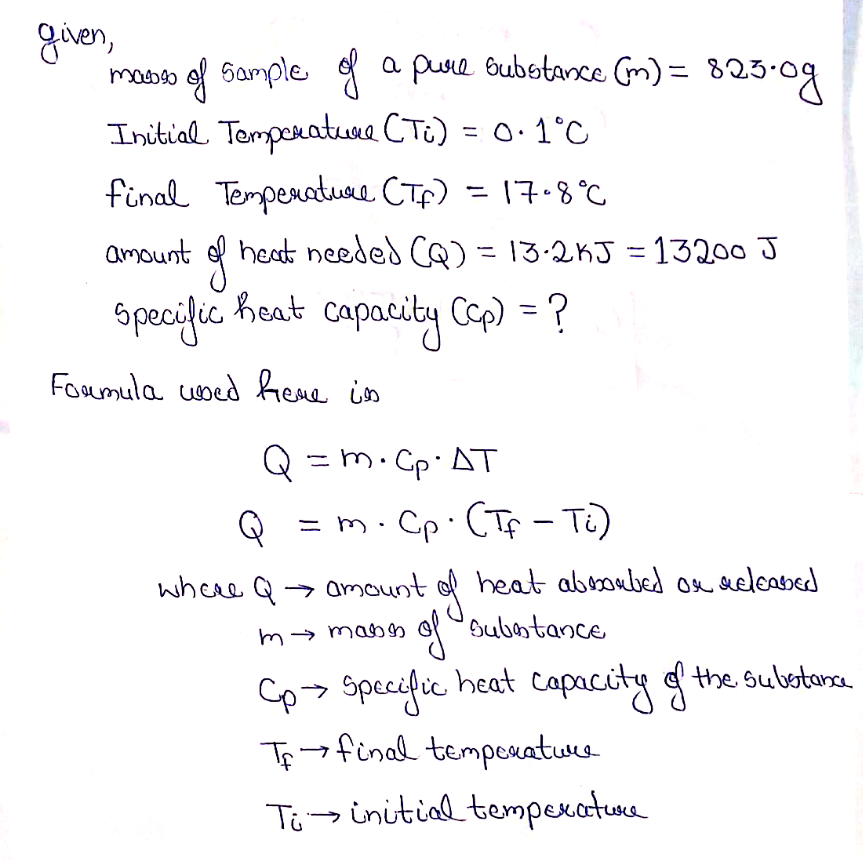 given,
mass of sample of a pure substance (m) = 823.0g
Initial Temperature (Ti) = 0.1°C
final Temperature (Tf) = 17.8°C
amount of heat needed (Q) = 13.2KJ = 13200 J
specific heat capacity (Cp) = ?
Formula used here is
Q = m · Cp · ΔT
Q = m · Cp · (Tf - Ti)
where Q → amount of heat absorbed or released
m → mass of substance
Cp → specific heat capacity of the substance
Tf → final temperature
Ti → initial temperature